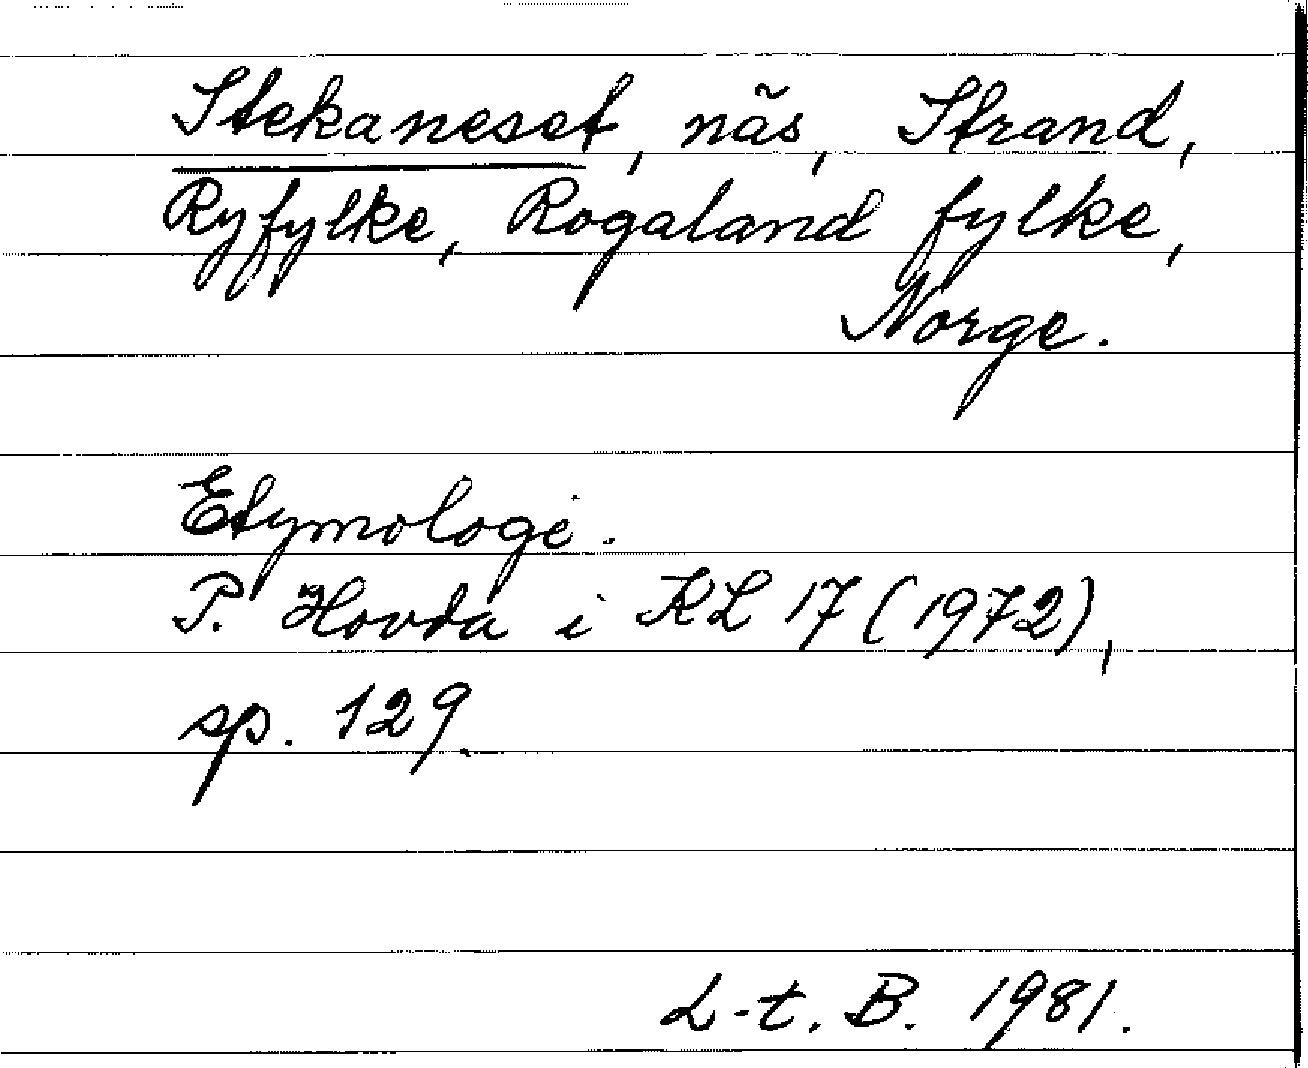 Stekaneset, näs, Strand,
Ryfylke, Rogaland fylke,
Norge.
Etymologi.
P. Hovda i KL 17 (1972),
sp. 129.
L-t. B. 1981.